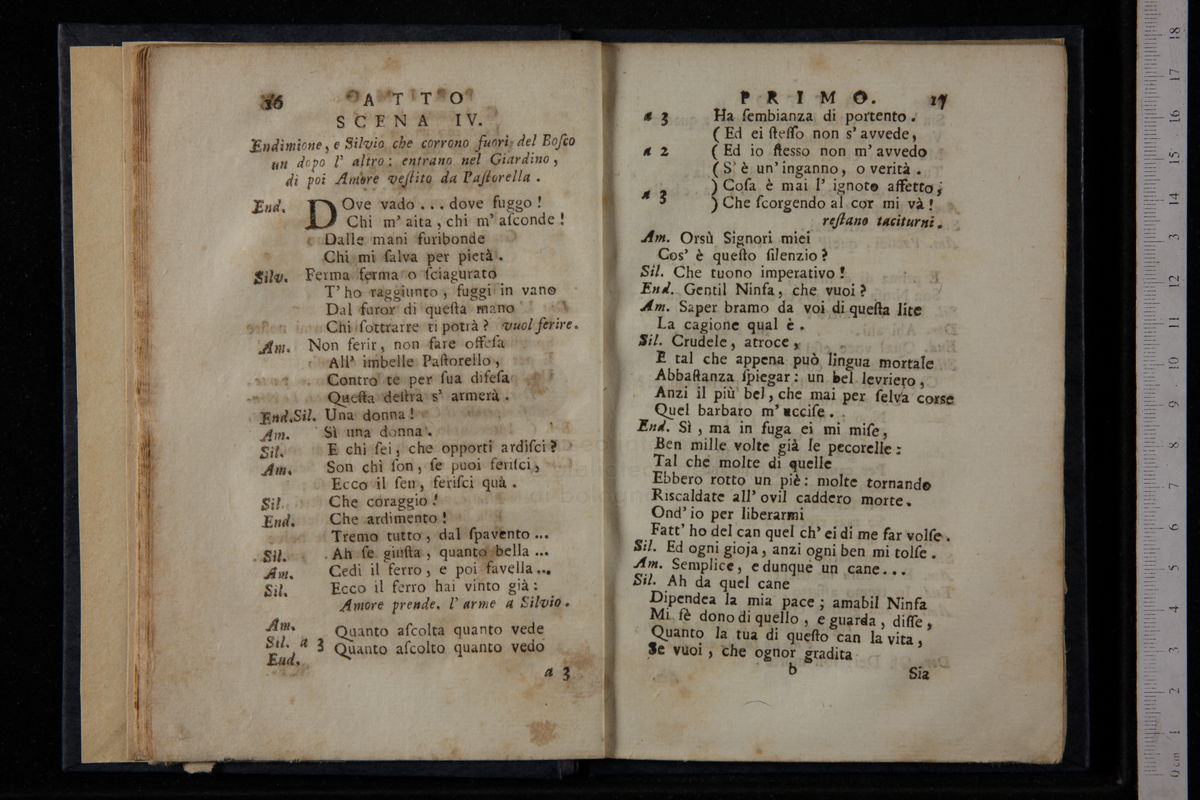 16 ATTO
SCENA IV.
Endimione, e Silvio che corrono fuori del Boſco
un dopo l' altro: entrano nel Giardino,
di poi Amore veſtito da Paſtorella.
End. DOve vado... dove fuggo!
Chi m' aita, chi m' aſconde!
Dalle mani furibonde
Chi mi ſalva per pietà.
Silv. Ferma ferma o ſciagurato
T' ho raggiunto, fuggi in vano
Dal furor di queſta mano
Chi ſottrarre ti potrà? vuol ferire.
Am. Non ferir, non fare offeſa
All' imbelle Paſtorello,
Contro te per ſua difeſa
Queſta deſtra s' armerà.
End.Sil. Una donna!
Am. Sì una donna.
Sil. E chi ſei, che opporti ardiſci?
Am. Son chi ſon, ſe puoi feriſci,
Ecco il ſen, feriſci quà.
Sil. Che coraggio!
End. Che ardimento!
Tremo tutto, dal ſpavento...
Sil. Ah ſe giuſta, quanto bella...
Am. Cedi il ferro, e poi favella...
Sil. Ecco il ferro hai vinto già:
Amore prende. l' arme a Silvio.
Am.
Sil. a 3 Quanto aſcolta quanto vede
End. Quanto aſcolto quanto vedo
a 3
PRIMO. 17
a 3 Ha ſembianza di portento.
( Ed ei ſteſſo non s' avvede,
a 2 ( Ed io ſtesso non m' avvedo
( S' è un' inganno, o verità.
a 3 ) Coſa è mai l' ignoto affetto,
) Che ſcorgendo al cor mi và!
reſtano taciturni.
Am. Orsù Signori miei
Cos' è queſto ſilenzio?
Sil. Che tuono imperativo!
End. Gentil Ninfa, che vuoi?
Am. Saper bramo da voi di queſta lite
La cagione qual è.
Sil. Crudele, atroce,
E tal che appena può lingua mortale
Abbaſtanza ſpiegar: un bel levriero,
Anzi il più bel, che mai per ſelva corse
Quel barbaro m' ucciſe.
End. Sì, ma in fuga ei mi miſe,
Ben mille volte già le pecorelle:
Tal che molte di quelle
Ebbero rotto un piè: molte tornando
Riscaldate all' ovil caddero morte.
Ond' io per liberarmi
Fatt' ho del can quel ch' ei di me far volſe.
Sil. Ed ogni gioja, anzi ogni ben mi tolſe.
Am. Semplice, e dunque un cane...
Sil. Ah da quel cane
Dipendea la mia pace; amabil Ninfa
Mi fè dono di quello, e guarda, diſſe,
Quanto la tua di queſto can la vita,
Se vuoi, che ognor gradita
b Sia